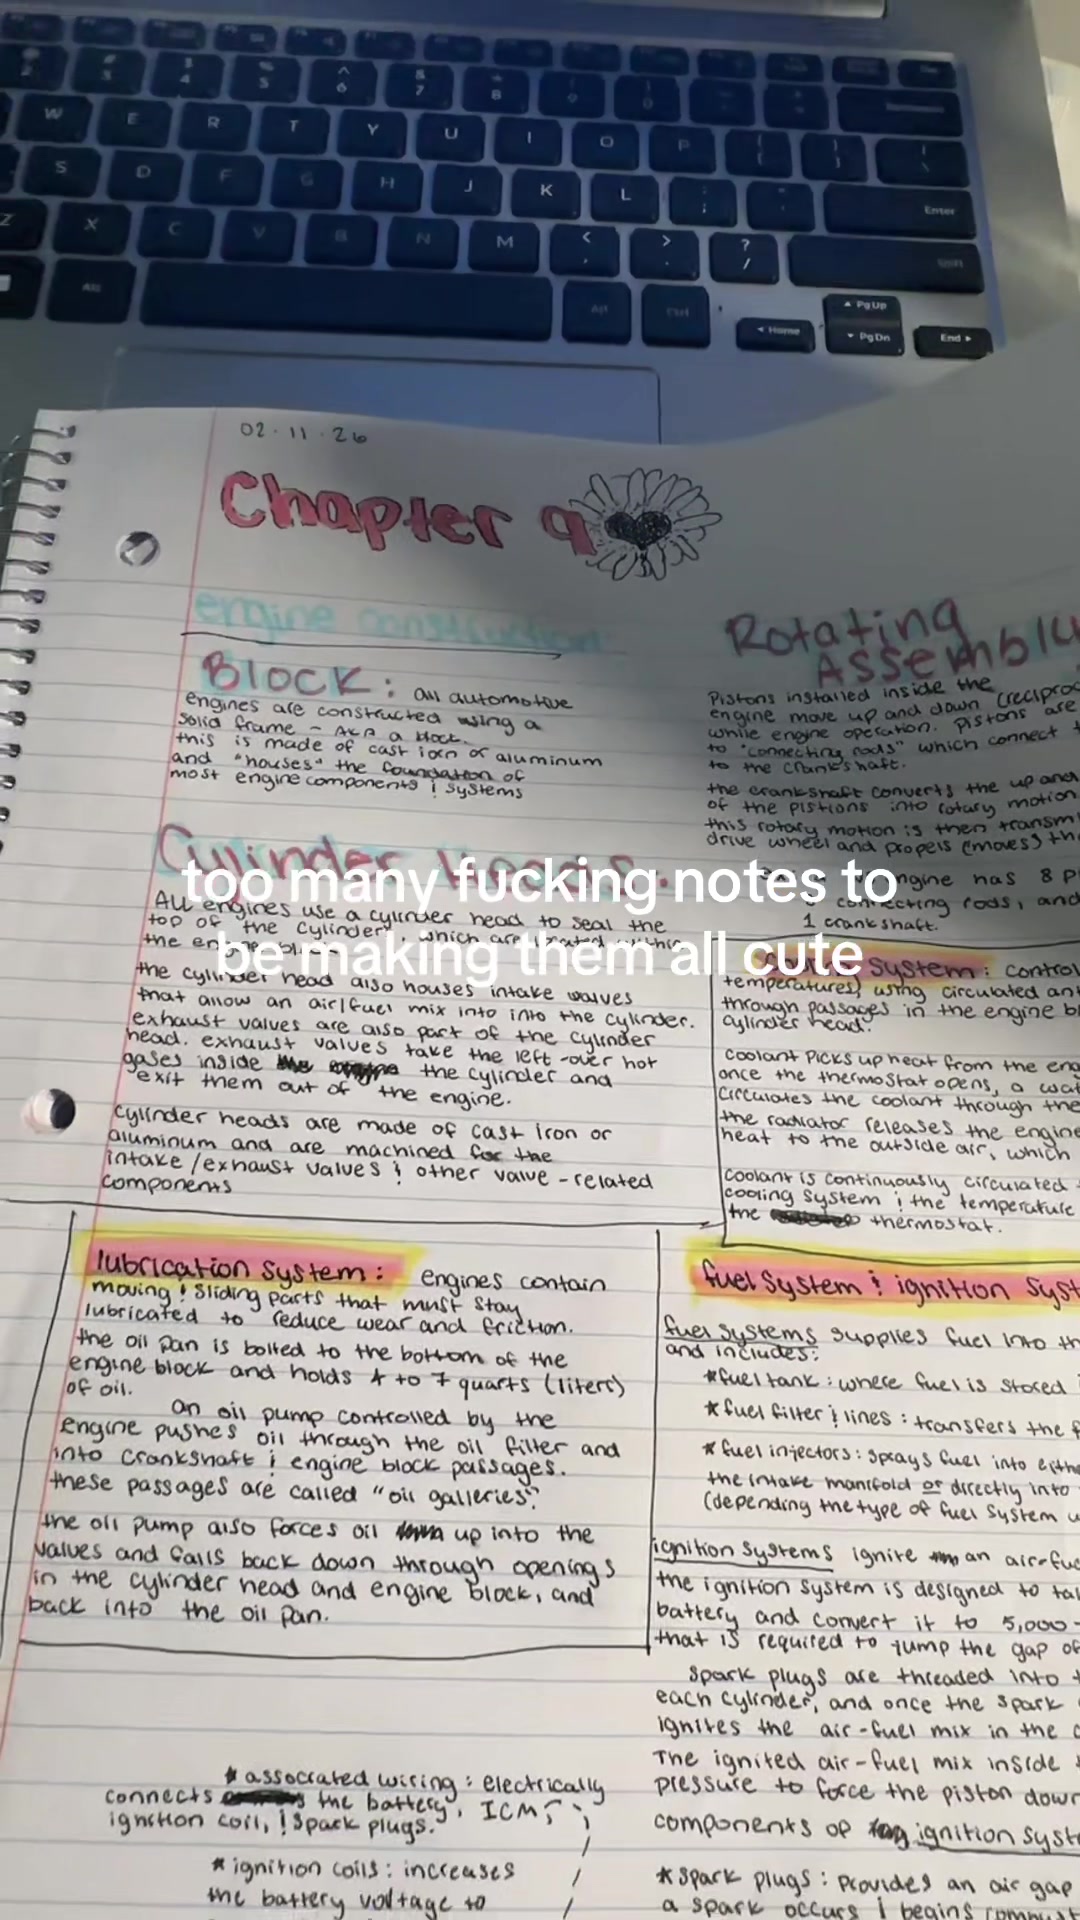 too many fucking notes to
be making them all cute
02.11.26
Chapter 9
engine construction
Block: all automotive
engines are constructed using a
solid frame - AKA a block.
this is made of cast iorn or aluminum
and "houses" the foundation of
most engine components & systems
Cylinder Heads:
All engines use a cylinder head to seal the
top of the cylinders, which are located within
the engine
the cylinder head also houses intake valves
that allow an air/fuel mix into into the cylinder.
exhaust valves are also part of the cylinder
head. exhaust valves take the left-over hot
gases inside the cylinder and
exit them out of the engine.
cylinder heads are made of cast iron or
aluminum and are machined for the
intake/exhaust valves & other valve-related
components
lubrication system: engines contain
moving & sliding parts that must stay
lubricated to reduce wear and friction.
the oil pan is bolted to the bottom of the
engine block and holds 4 to 7 quarts (liters)
of oil.
an oil pump controlled by the
engine pushes oil through the oil filter and
into crankshaft & engine block passages.
these passages are called "oil galleries".
the oil pump also forces oil up into the
valves and falls back down through openings
in the cylinder head and engine block, and
back into the oil pan.
* associated wiring: electrically
connects the battery, ICM,
ignition coil, & spark plugs.
* ignition coils: increases
the battery voltage to
Rotating
Assembly
Pistons installed inside the
engine move up and down (recipro
while engine operation. pistons are
to "connecting rods" which connect
to the crankshaft.
the crankshaft converts the up and
of the pistions into rotary motion
this rotary motion is then transm
drive wheel and propels (moves) th
engine has 8 p
connecting rods, and
1 crankshaft.
system: control
temperatures, using circulated an
through passages in the engine b
cylinder head.
coolant picks up heat from the eng
once the thermostat opens, a wat
circulates the coolant through the
the radiator releases the engine
heat to the outside air, which
coolant is continuously circulated
cooling system & the temperature
the thermostat.
fuel system & ignition syst
fuel systems supplies fuel into th
and includes:
* fuel tank: where fuel is stored
* fuel filter & lines: transfers the f
* fuel injectors: sprays fuel into eith
the intake manifold or directly into
(depending the type of fuel system u
ignition systems ignite an air-fu
the ignition system is designed to ta
battery and convert it to 5,000-
that is required to jump the gap of
spark plugs are threaded into
each cylinder, and once the spark
ignites the air-fuel mix in the c
The ignited air-fuel mix inside
pressure to force the piston down
components of ignition syst
* spark plugs: provides an air gap
a spark occurs & begins combust